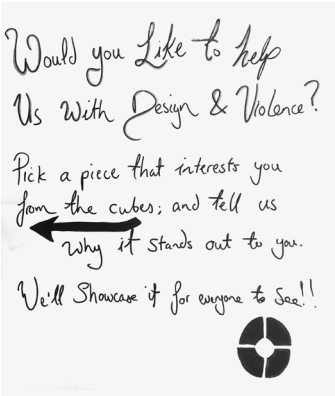 Would you Like to help
Us With Design & Violence?
Pick a piece that interests you
from the cubes; and tell us
why it stands out to you.
We'll Showcase it for everyone to See!!